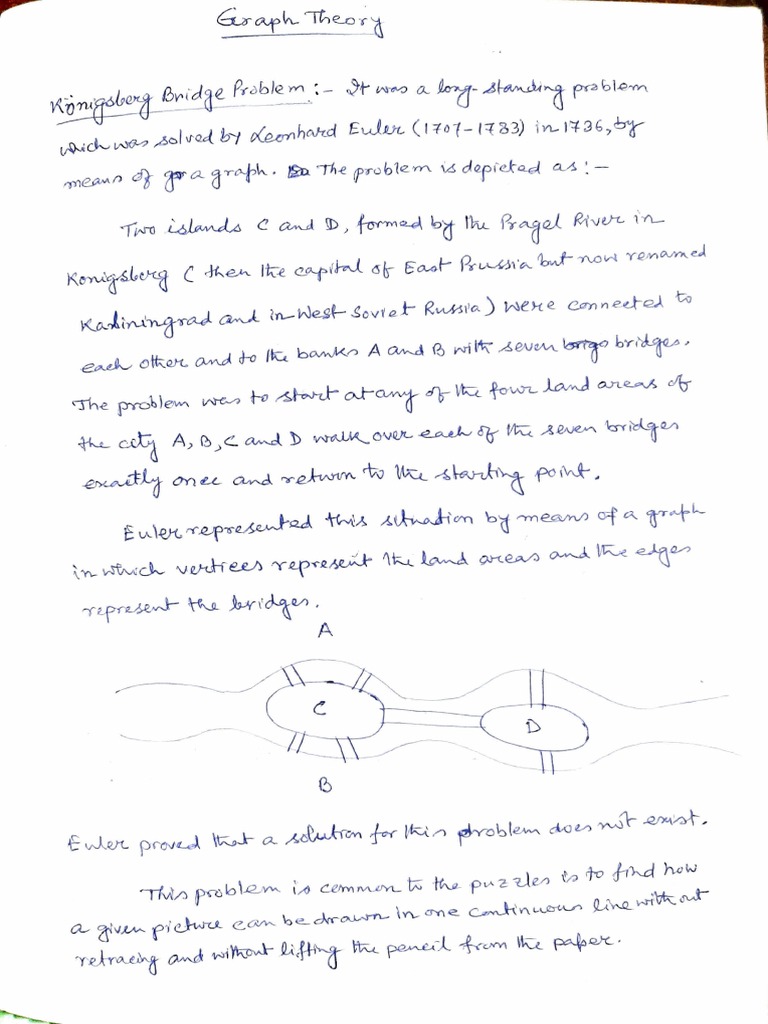 Graph Theory
Königsberg Bridge Problem :- It was a long-standing problem
which was solved by Leonhard Euler (1707-1783) in 1736, by
means of a graph. The problem is depicted as :-
Two islands C and D, formed by the Pragel River in
Konigsberg ( then the capital of East Prussia but now renamed
Kaliningrad and in West Soviet Russia) were connected to
each other and to the banks A and B with seven bridges.
The problem was to start at any of the four land areas of
the city A, B, C and D walk over each of the seven bridges
exactly once and return to the starting point.
Euler represented this situation by means of a graph
in which vertices represent the land areas and the edges
represent the bridges.
A
C
D
B
Euler proved that a solution for this problem does not exist.
This problem is common to the puzzles is to find how
a given picture can be drawn in one continuous line without
retracing and without lifting the pencil from the paper.